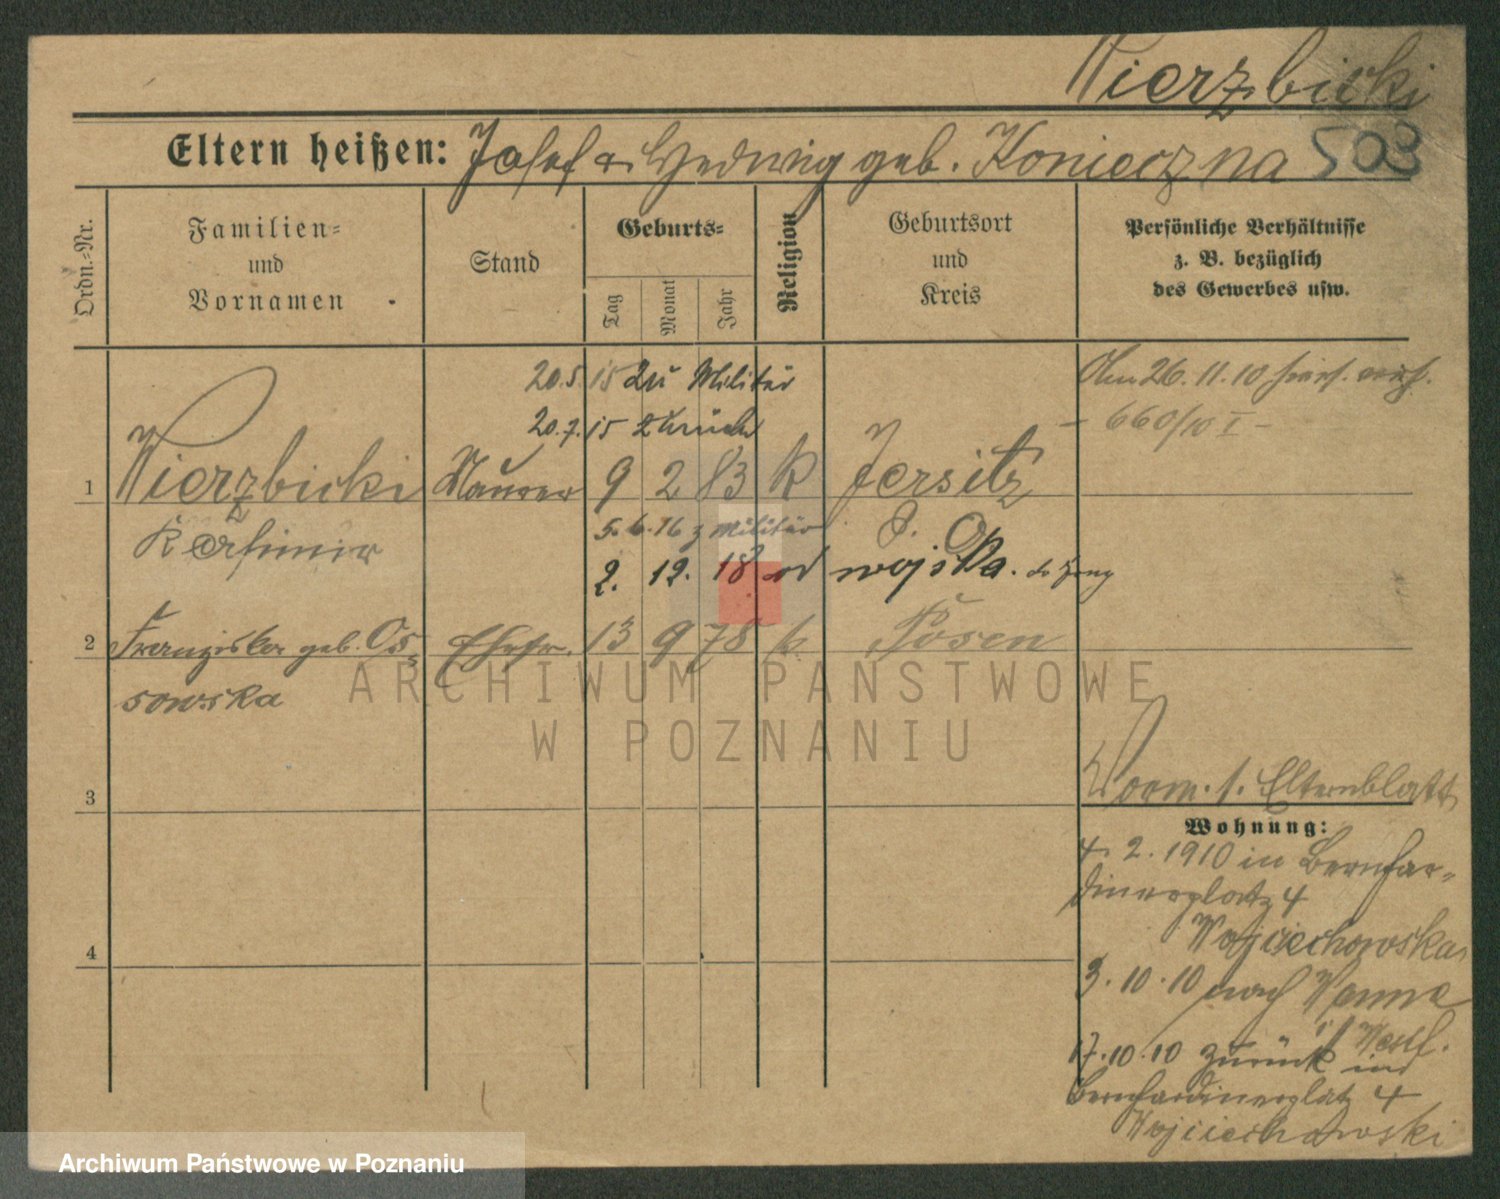 Wierzbicki
Eltern heißen: Josef u. Hedwig geb. Konieczna 503
Ordn.-Nr.
Familien-
und
Vornamen
Stand
Geburts-
Tag
Monat
Jahr
Religion
Geburtsort
und
Kreis
Persönliche Verhältnisse
z. B. bezüglich
des Gewerbes usw.
20.5.15 zu Militär
26.11.10
20.7.15 zurück
- 660/10 I -
1 Wierzbicki Maurer 9 2 83 k Jersitz
Kasimir
5.6.16 z Militär
P. O.
2. 12. 18 od wojska.
2 Franziska geb. Os Ehefr. 13 9 78 k Posen
sowska
ARCHIWUM PAŃSTWOWE
W POZNANIU
3
Vorm. s. Elternblatt
Wohnung:
4 2. 1910 in Bernhar-
dinerplatz 4
Wojciechowska
4
3.10.10 nach Wanne
i/ Westf.
17.10.10 zurück
Bernhardinerplatz 4
Wojciechowski
Archiwum Państwowe w Poznaniu